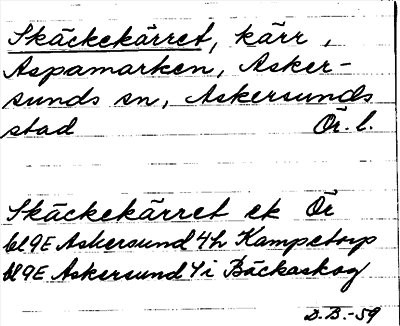 Skäckekärret, kärr,
Aspamarken, Asker-
sunds sn, Askersunds
stad Ör. l.
Skäckekärret ek Ör
bl 9E Askersund 4h Kampetorp
bl 9E Askersund 4i Bäckaskog
D.B.-59